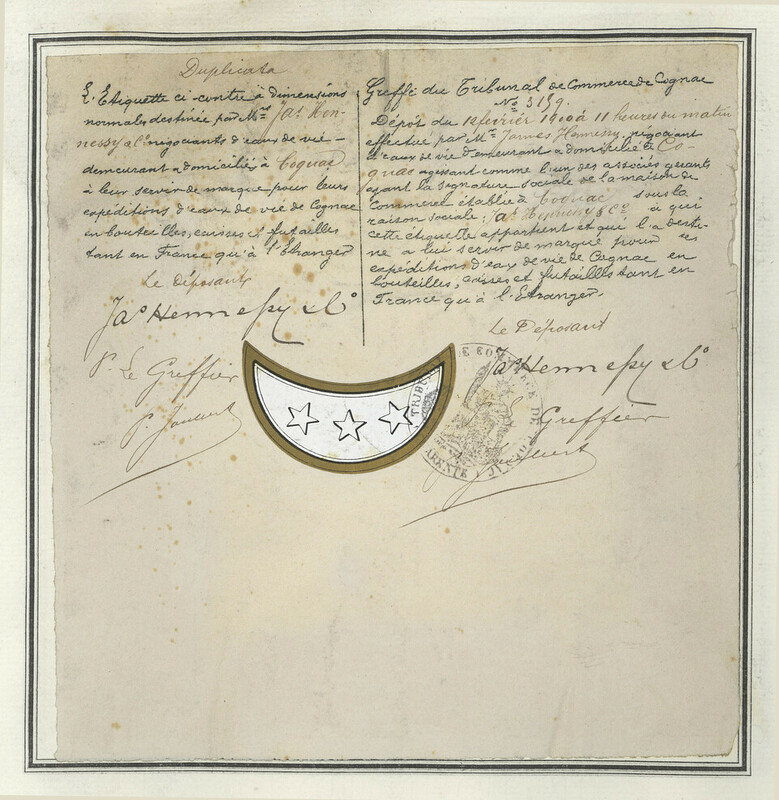 Duplicata
L'Etiquette ci-contre à dimensions
normales destinée par Mrs Jas Hen-
nessy & Co négociants d'eaux de vie –
demeurant & domiciliés à Cognac
à leur servir de marque pour leurs
expéditions d'eaux de vie de Cognac
en bouteilles, caisses et futailles
tant en France qu'à l'Etranger
Le déposant
Jas Hennessy & Co
P. Le Greffier
P. Joubert
Greffe du Tribunal de Commerce de Cognac
No 3159.
Dépôt du 12 février 1900 à 11 heures du matin
effectué par Mr James Hennessy, négociant
d'eaux de vie demeurant & domicilié à Co-
gnac agissant comme l'un des associés gérants
ayant la signature sociale de la maison de
Commerce établie à Cognac sous la
raison sociale: Jas Hennessy & Co à qui
cette étiquette appartient et qui l'a desti-
né à lui servir de marque pour ses
expéditions d'eaux de vie de Cognac en
bouteilles, caisses et futailles tant en
France qu'à l'Etranger.
Le Déposant
Jas Hennessy & Co
Greffier
Joubert
TRIBUNAL DE COMMERCE DE